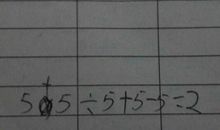 5+5÷5+5-5=2